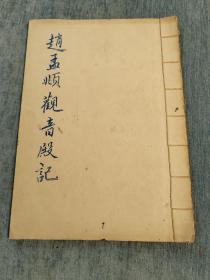 趙孟頫觀音殿記